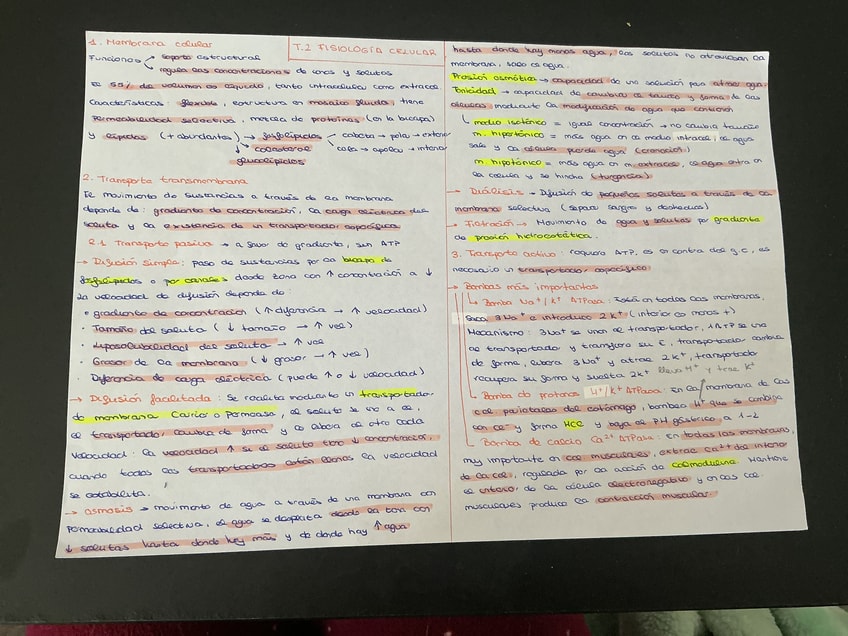 T.2 FISIOLOGÍA CELULAR
1. Membrana celular
Funciones soporte estructural
regula las concentraciones de iones y solutos
El 55% de volumen es líquido, tanto intracelular como extracel.
Características: flexible, estructura en mosaico fluido, tiene
Permeabilidad selectiva, mezcla de proteínas (en la bicapa)
y lípidos (+ abundantes) → fosfolípidos cabeza → polar → exterior
→ colesterol cola → apolar → interior
glucolípidos
2. Transporte transmembrana
El movimiento de sustancias a través de la membrana
depende de: gradiente de concentración, la carga eléctrica del
soluto y la existencia de un transportador específico
2.1 Transporte pasivo → a favor de gradiente, sin ATP
→ Difusión simple: paso de sustancias por la bicapa de
fosfolípidos o por canales desde zona con ↑ concentración a ↓
La velocidad de difusión depende de:
· gradiente de concentración (↑ diferencia → ↑ velocidad)
· Tamaño del soluto (↓ tamaño → ↑ vel)
· Liposolubilidad del soluto → ↑ vel
· Grosor de la membrana (↓ grosor → ↑ vel)
· Diferencia de carga eléctrica (puede ↑ o ↓ velocidad)
→ Difusión facilitada: Se realiza mediante un transportador
de membrana Carrier o Permeasa, el soluto se une a él,
el transportador, cambia de forma y lo libera al otro lado
Velocidad: La velocidad ↑ si el soluto tiene ↓ concentración,
cuando todos los transportadores están llenos la velocidad
se estabiliza.
→ Osmosis → movimiento de agua a través de una membrana con
permeabilidad selectiva, el agua se desplaza desde la zona con
↓ solutos hasta donde hay más y de donde hay ↑ agua
hasta donde hay menos agua, los solutos no atraviesan la
membrana, solo el agua.
Presión osmótica → capacidad de una solución para atraer agua.
Tonicidad → capacidad de cambiar el tamaño y forma de las
células mediante la modificación de agua que contienen
medio isotónico = igual concentración → no cambia tamaño
m. hipertónico = más agua en el medio intracel, el agua
sale y la célula pierde agua (crenación)
m. hipotónico = más agua en m. extracel, el agua entra en
la célula y se hincha (turgencia)
→ Diálisis → Difusión de pequeños solutos a través de la
membrana selectiva (separa sangre y desechos)
→ Filtración → Movimiento de agua y solutos por gradiente
de presión hidrostática.
3. Transporte activo: requiere ATP, es en contra del g.c, es
necesario un transportador específico
→ Bombas más importantes
→ Bomba Na⁺/K⁺ ATPasa: Están en todas las membranas,
Saca 3Na⁺ e introduce 2K⁺ (interior es menos +)
Mecanismo: 3Na⁺ se une al transportador, 1 ATP se une
al transportador y transfiere su E, transportador cambia
de forma, libera 3Na⁺ y atrae 2K⁺, transportador
recupera su forma y suelta 2K⁺ lleva H⁺ y trae K⁺
→ Bomba de protones H⁺/K⁺ ATPasa: En la membrana de las
cel parietales del estómago, bombea H⁺ que se combina
con Cl⁻ y forma HCl y baja el PH gástrico a 1-2
→ Bomba de calcio Ca²⁺ ATPasa: En todas las membranas,
muy importante en cel musculares, extrae Ca²⁺ del interior
de la cel, regulada por la acción de calmodulina. Mantiene
el interior de la célula electronegativo y en las cel
musculares produce la contracción muscular.